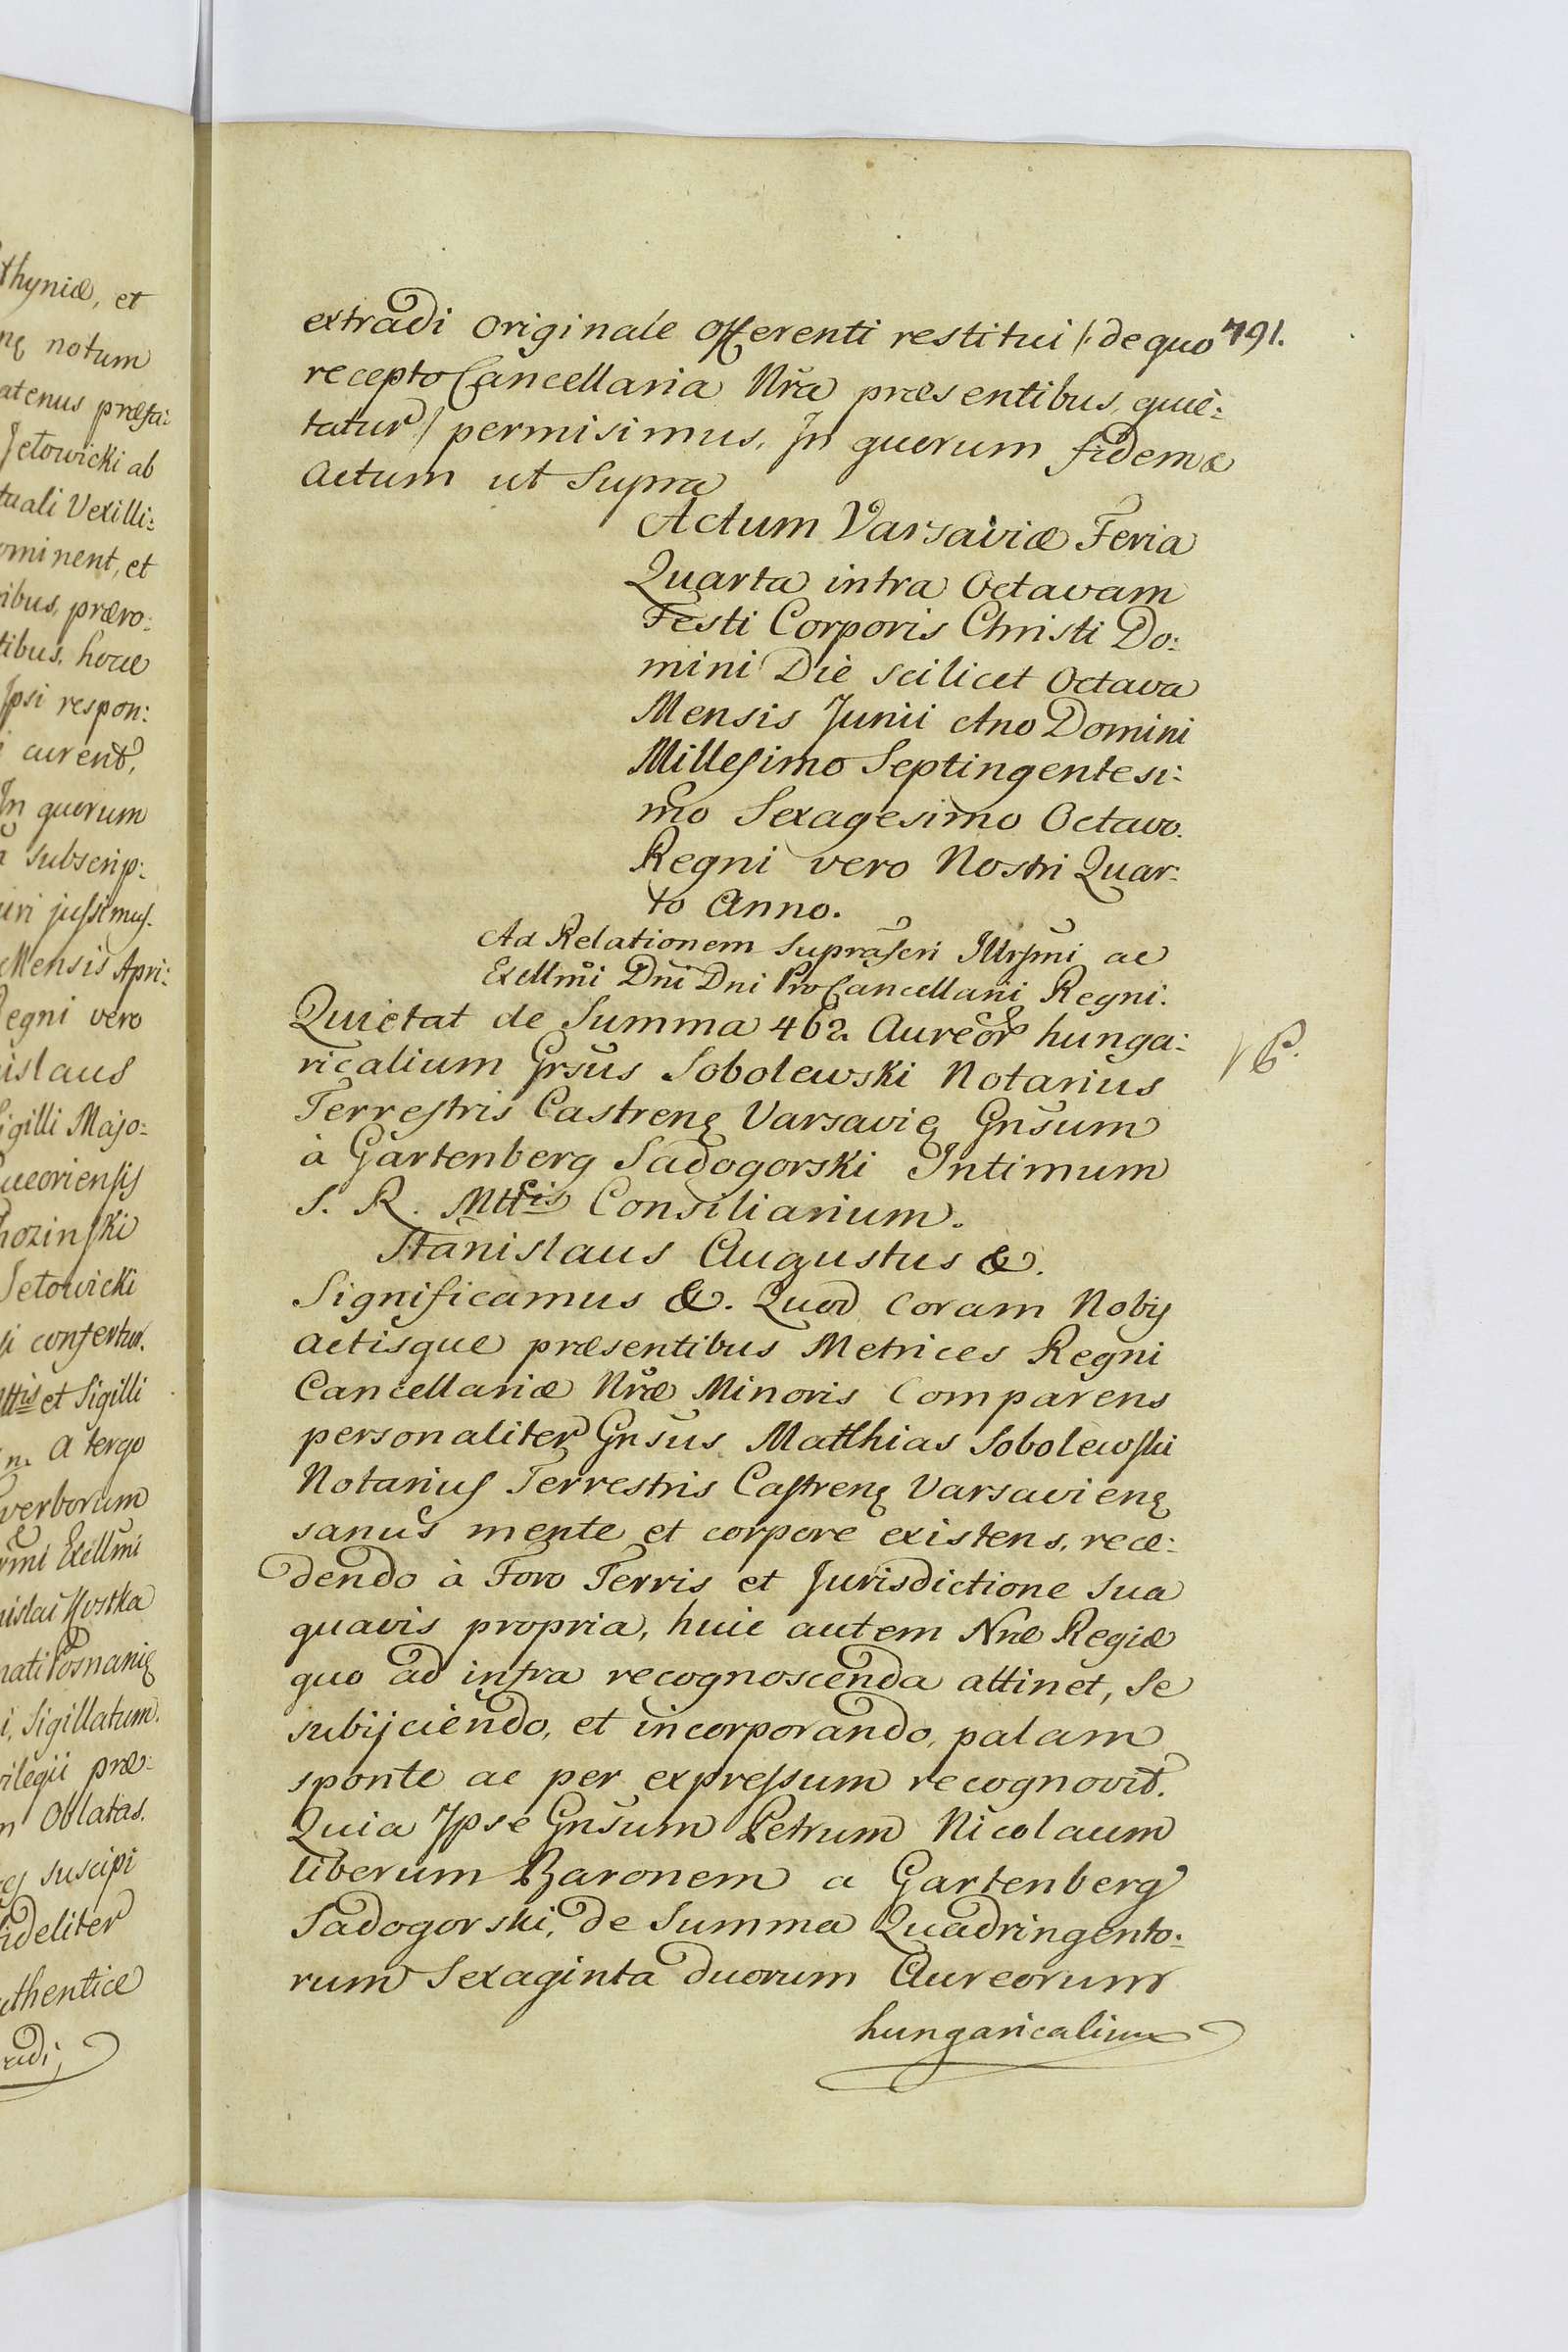 thyniæ, et
nę notum
atenus præfa:
Jełowicki ab
tuali Vexilli:
ominent, et
ribus, præro:
tibus, hocce
Ipsi respon:
i curent,
In quorum
a subscrip:
iri jussimus.
Mensis Apri:
egni vero
islaus
Sigilli Majo:
uceoriensis
hozinski
Jełowicki
si confertur.
ttis et Sigilli
m. A tergo
verborum
rmi Exellmi
nislai Kostka
nati Posnanię
i, Sigillatum.
vilegii præ:
m Oblatas.
es suscipi
fideliter
uthentice
radi,
791.
extradi Originale Offerenti restitui /: de quo
recepto Cancellaria Nra præsentibus, quie:
tatur / permisimus. In quorum fidem &
Actum ut Supra
Actum Varsaviæ Feria
Quarta intra Octavam
Festi Corporis Christi Do:
mini Die scilicet Octava
Mensis Junii Ano Domini
Millesimo Septingentesi:
mo Sexagesimo Octavo.
Regni vero Nostri Quar:
to Anno.
Ad Relationem supraseri Illrsmi ac
Exellmi Dni Dni ProCancellarii Regni.
Quietat de Summa 462 Aureor hunga:
ricalium Grsus Sobolewski Notarius
Terrestris Castrenę Varsavię Gnsum
à Gartenberg Sadogorski Intimum
S. R. Mttis Consiliarium.
Stanislaus Augustus &.
Significamus &. Quod coram Nobis
actisque præsentibus Metrices Regni
Cancellariæ Nræ Minoris Comparens
personaliter Gnsus Matthias Sobolewski
Notarius Terrestris Castrenę Varsavienę
sanus mente et corpore existens, rece:
dendo à Foro Terris et Jurisdictione sua
quavis propria, huic autem Nræ Regiæ
quo ad infra recognoscenda attinet, se
subijciendo, et incorporando, palam
sponte ac per expressum recognovit.
Quia Ipse Gnsum Petrum Nicolaum
liberum Baronem a Gartenberg
Sadogorski, de Summa Quadringento:
rum Sexaginta duorum Aureorum
hungaricalium